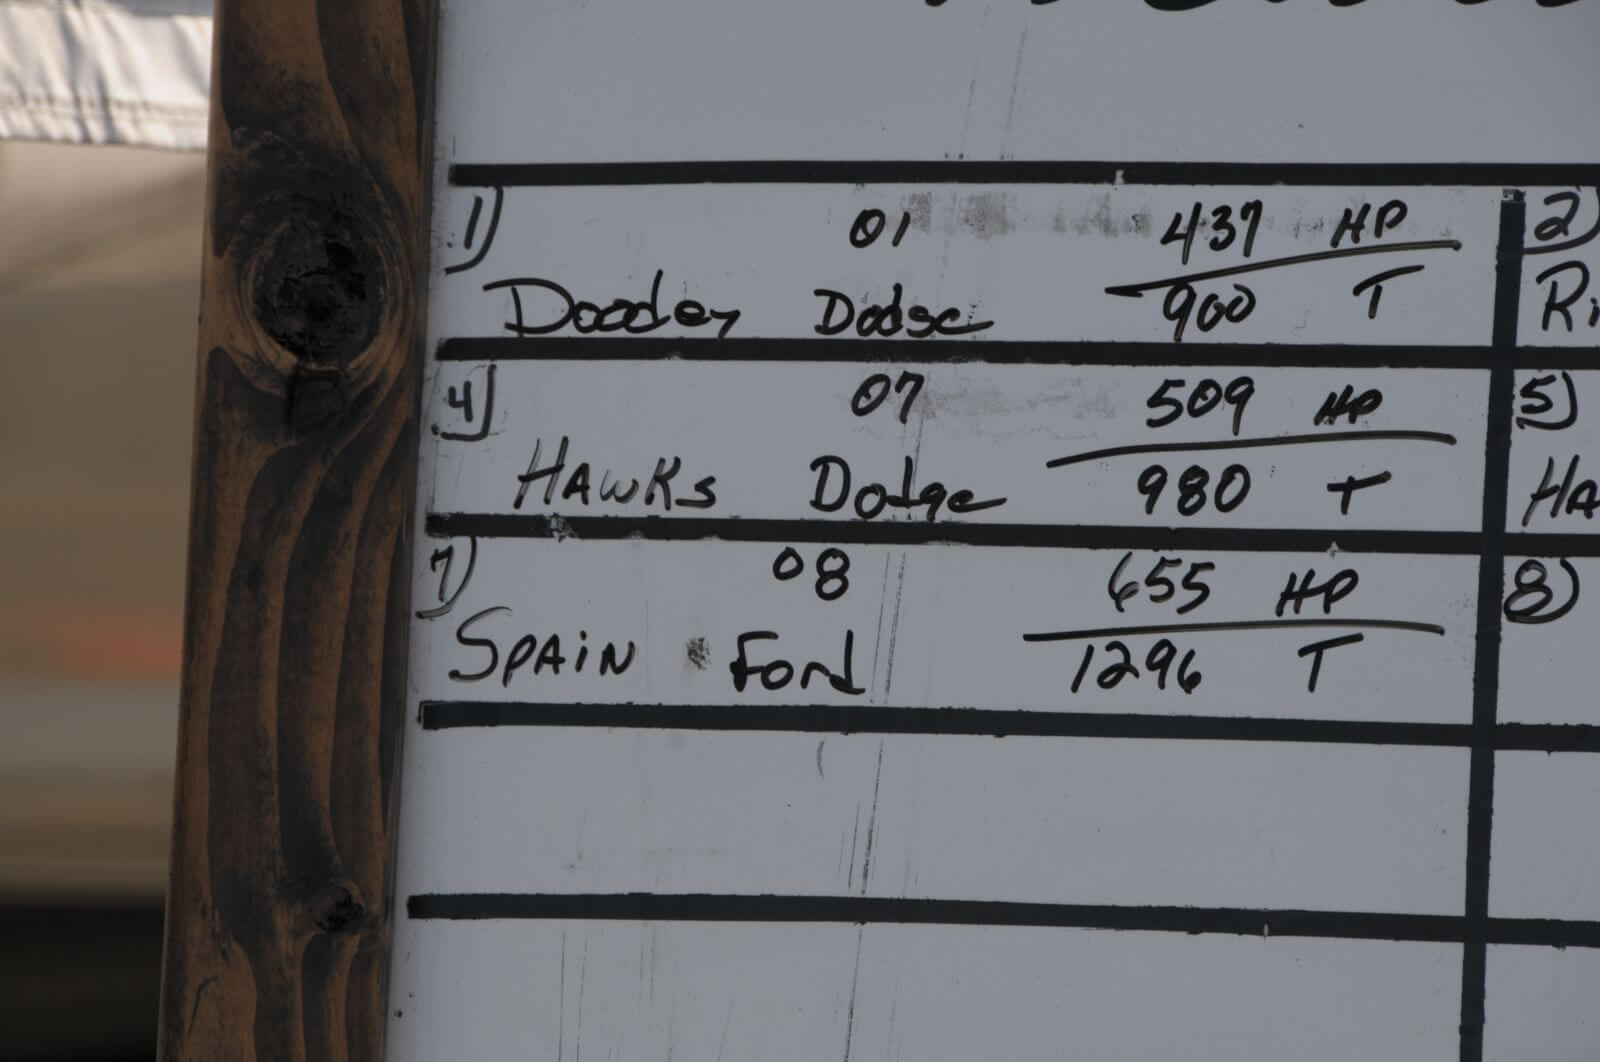 1) 01 437 HP
Dooley Dodge 900 T
4) 07 509 HP
HAWKS Dodge 980 T
7) 08 655 HP
SPAIN Ford 1296 T
2)
Ri
5)
HA
8)